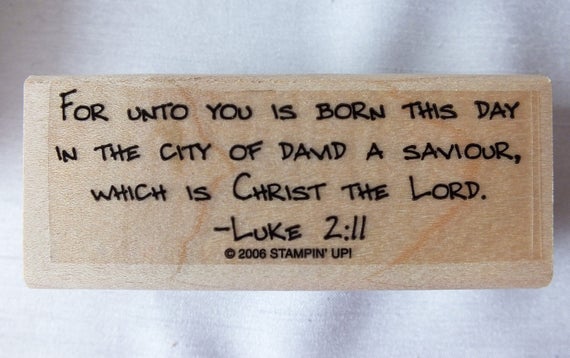 For unto you is born this day
in the city of David a Saviour,
which is Christ the Lord.
-Luke 2:11
© 2006 STAMPIN' UP!